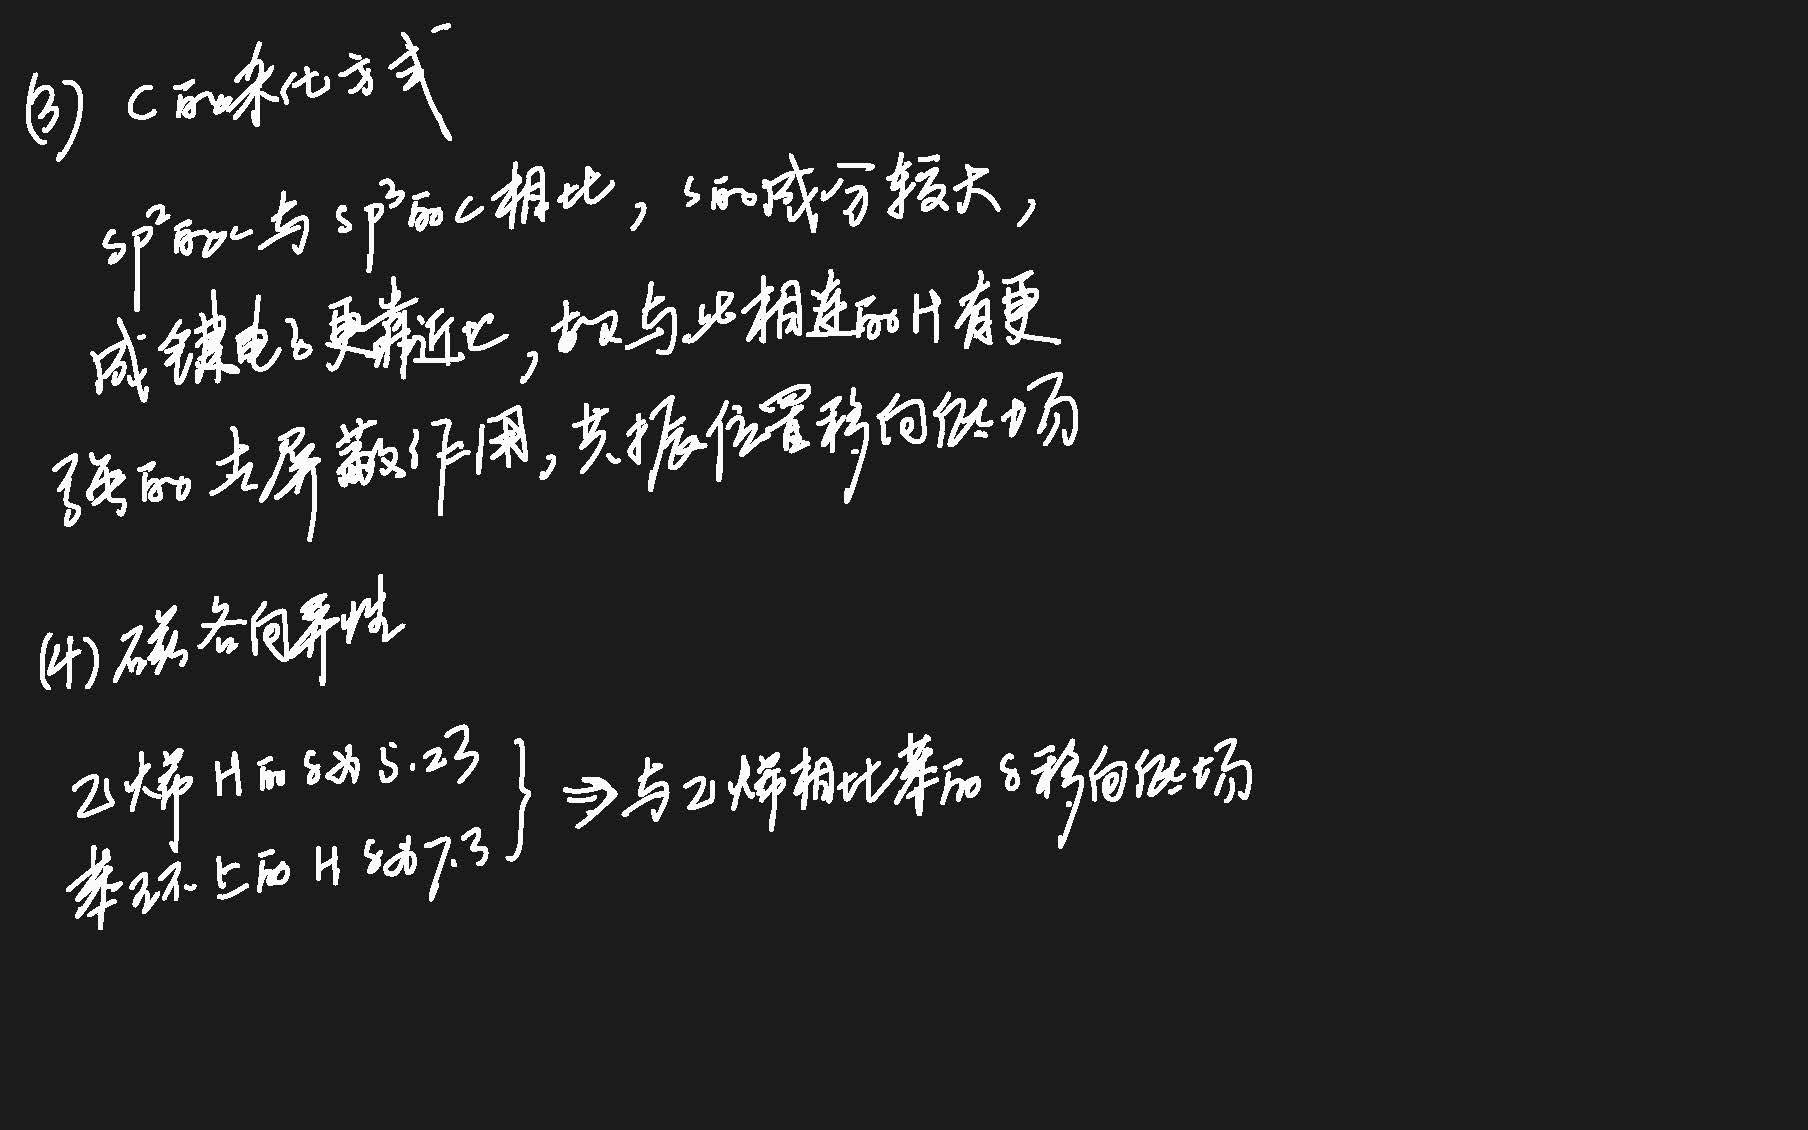 (3) C的杂化方式
sp²的C与sp³的C相比，s的成分较大，
成键电子更靠近C，故与此相连的H有更
强的去屏蔽作用，共振位置移向低场
(4) 磁各向异性
乙烯H的δ为5.23 } ⇒与乙烯相比苯的δ移向低场
苯环上的H δ为7.3